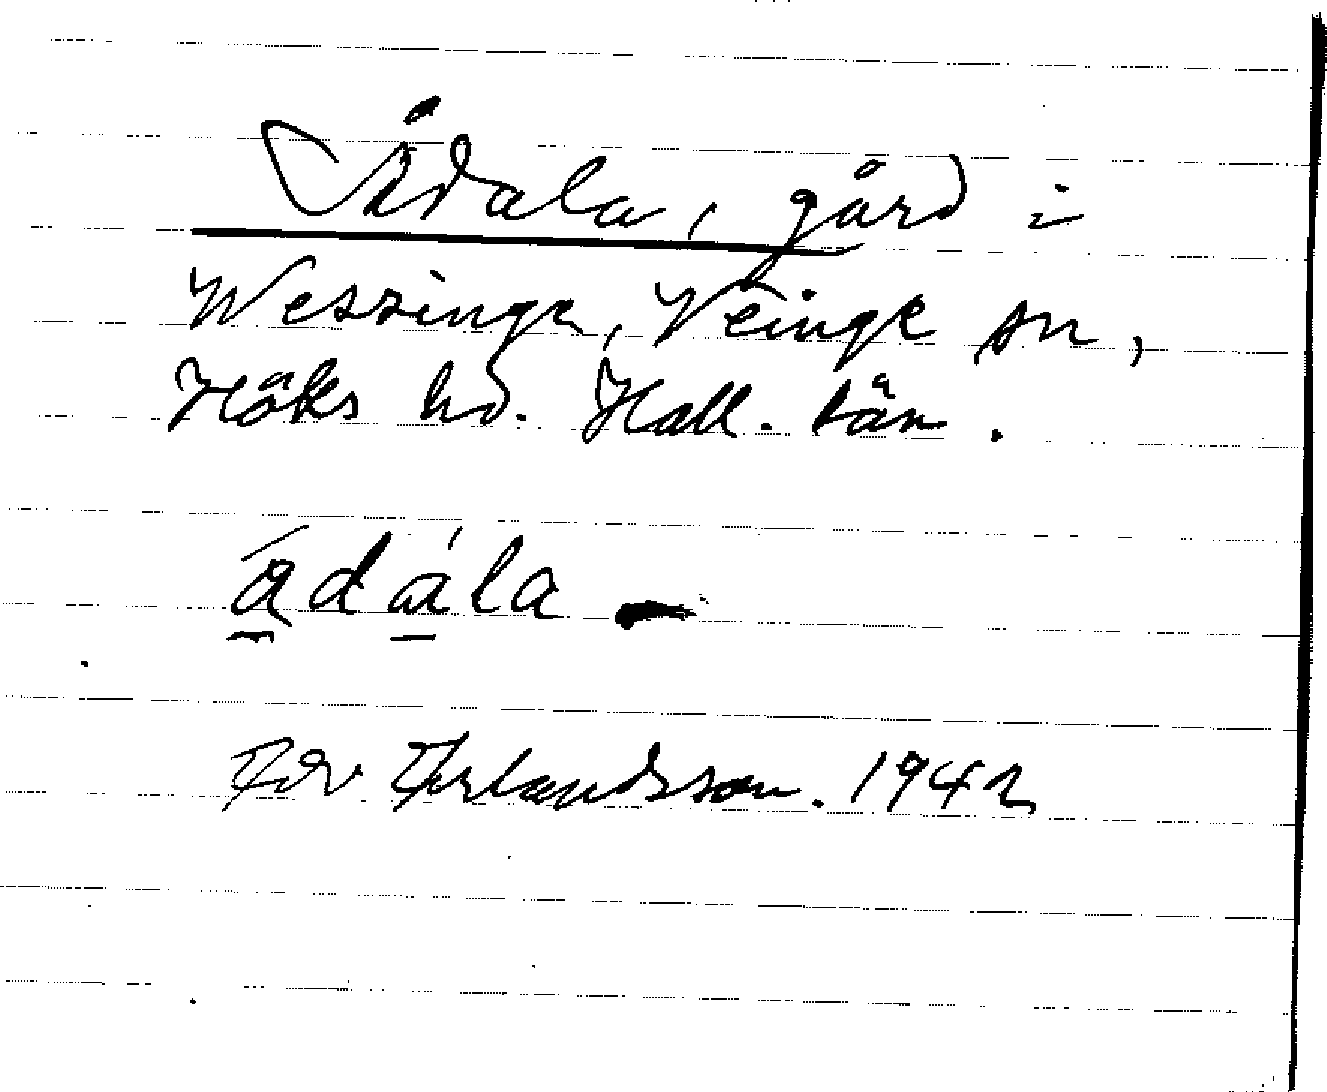 Ådala, gård i
Wessinge, Veinge sn,
Höks hd. Hall. län.
ådála
Tor Erlandsson. 1942